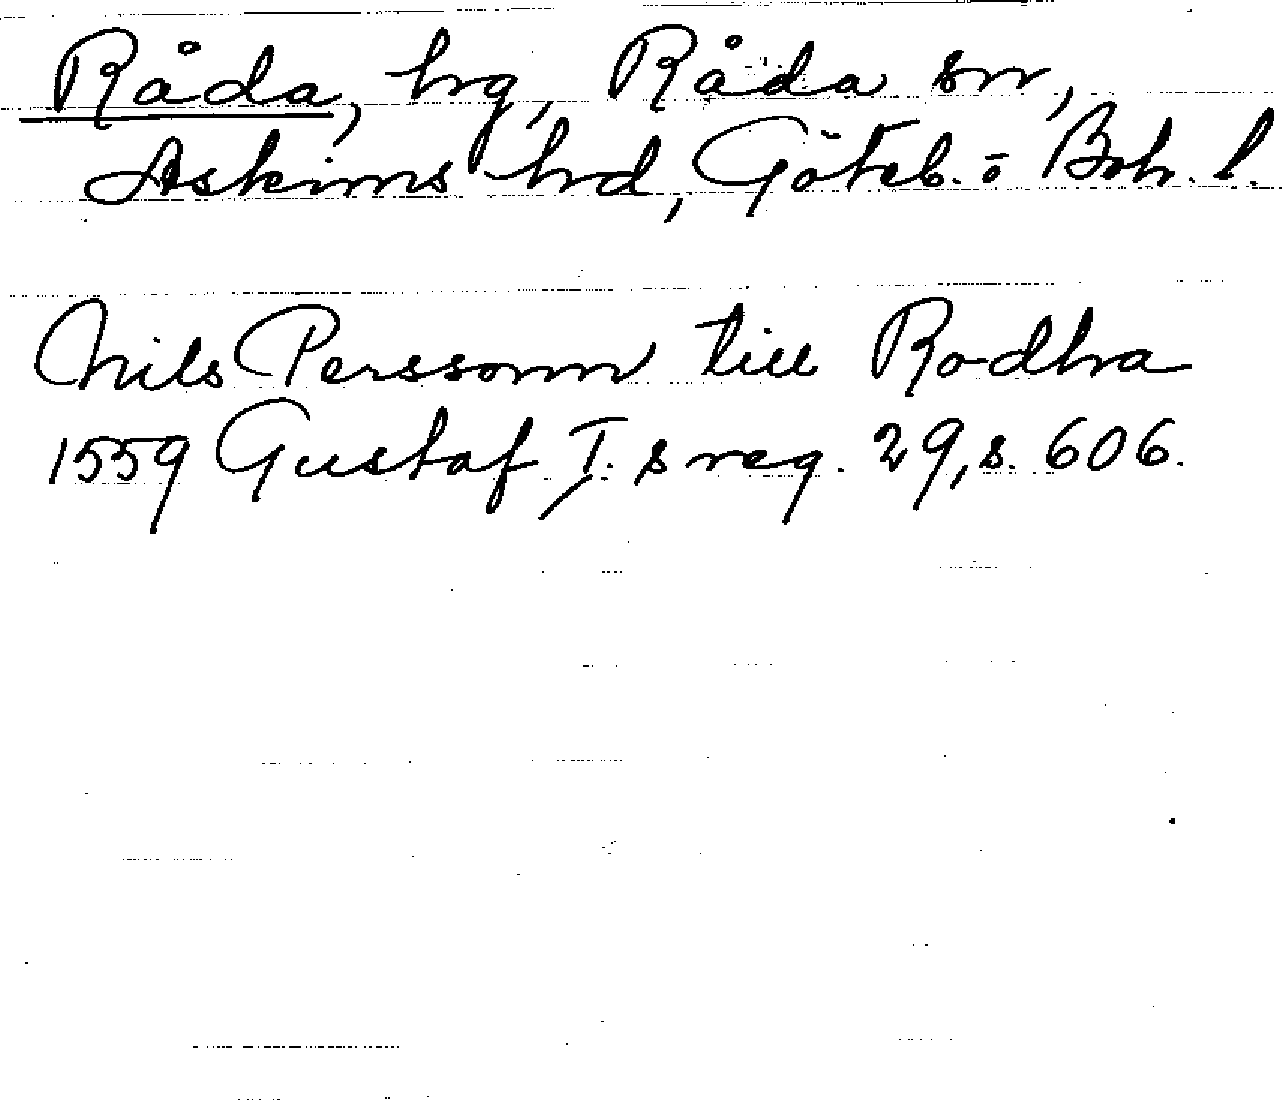 Råda, hrg, Råda sn,
Askims hrd, Göteb. o Boh. l.
Nils Perssonn till Rodhra
1559 Gustaf I. s reg. 29, s. 606.